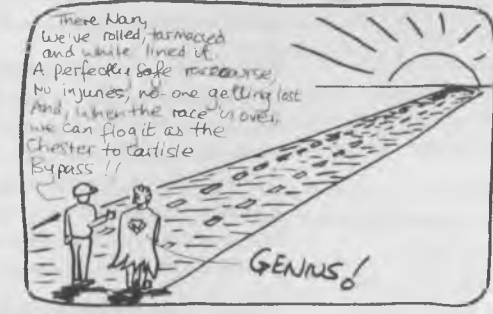 There Nan,
We've rolled, tarmacced
and white lined it.
A perfectly safe racecourse,
No injuries, no-one getting lost
And, when the race is over,
we can flog it as the
Chester to Carlisle
Bypass !!
GENIUS!